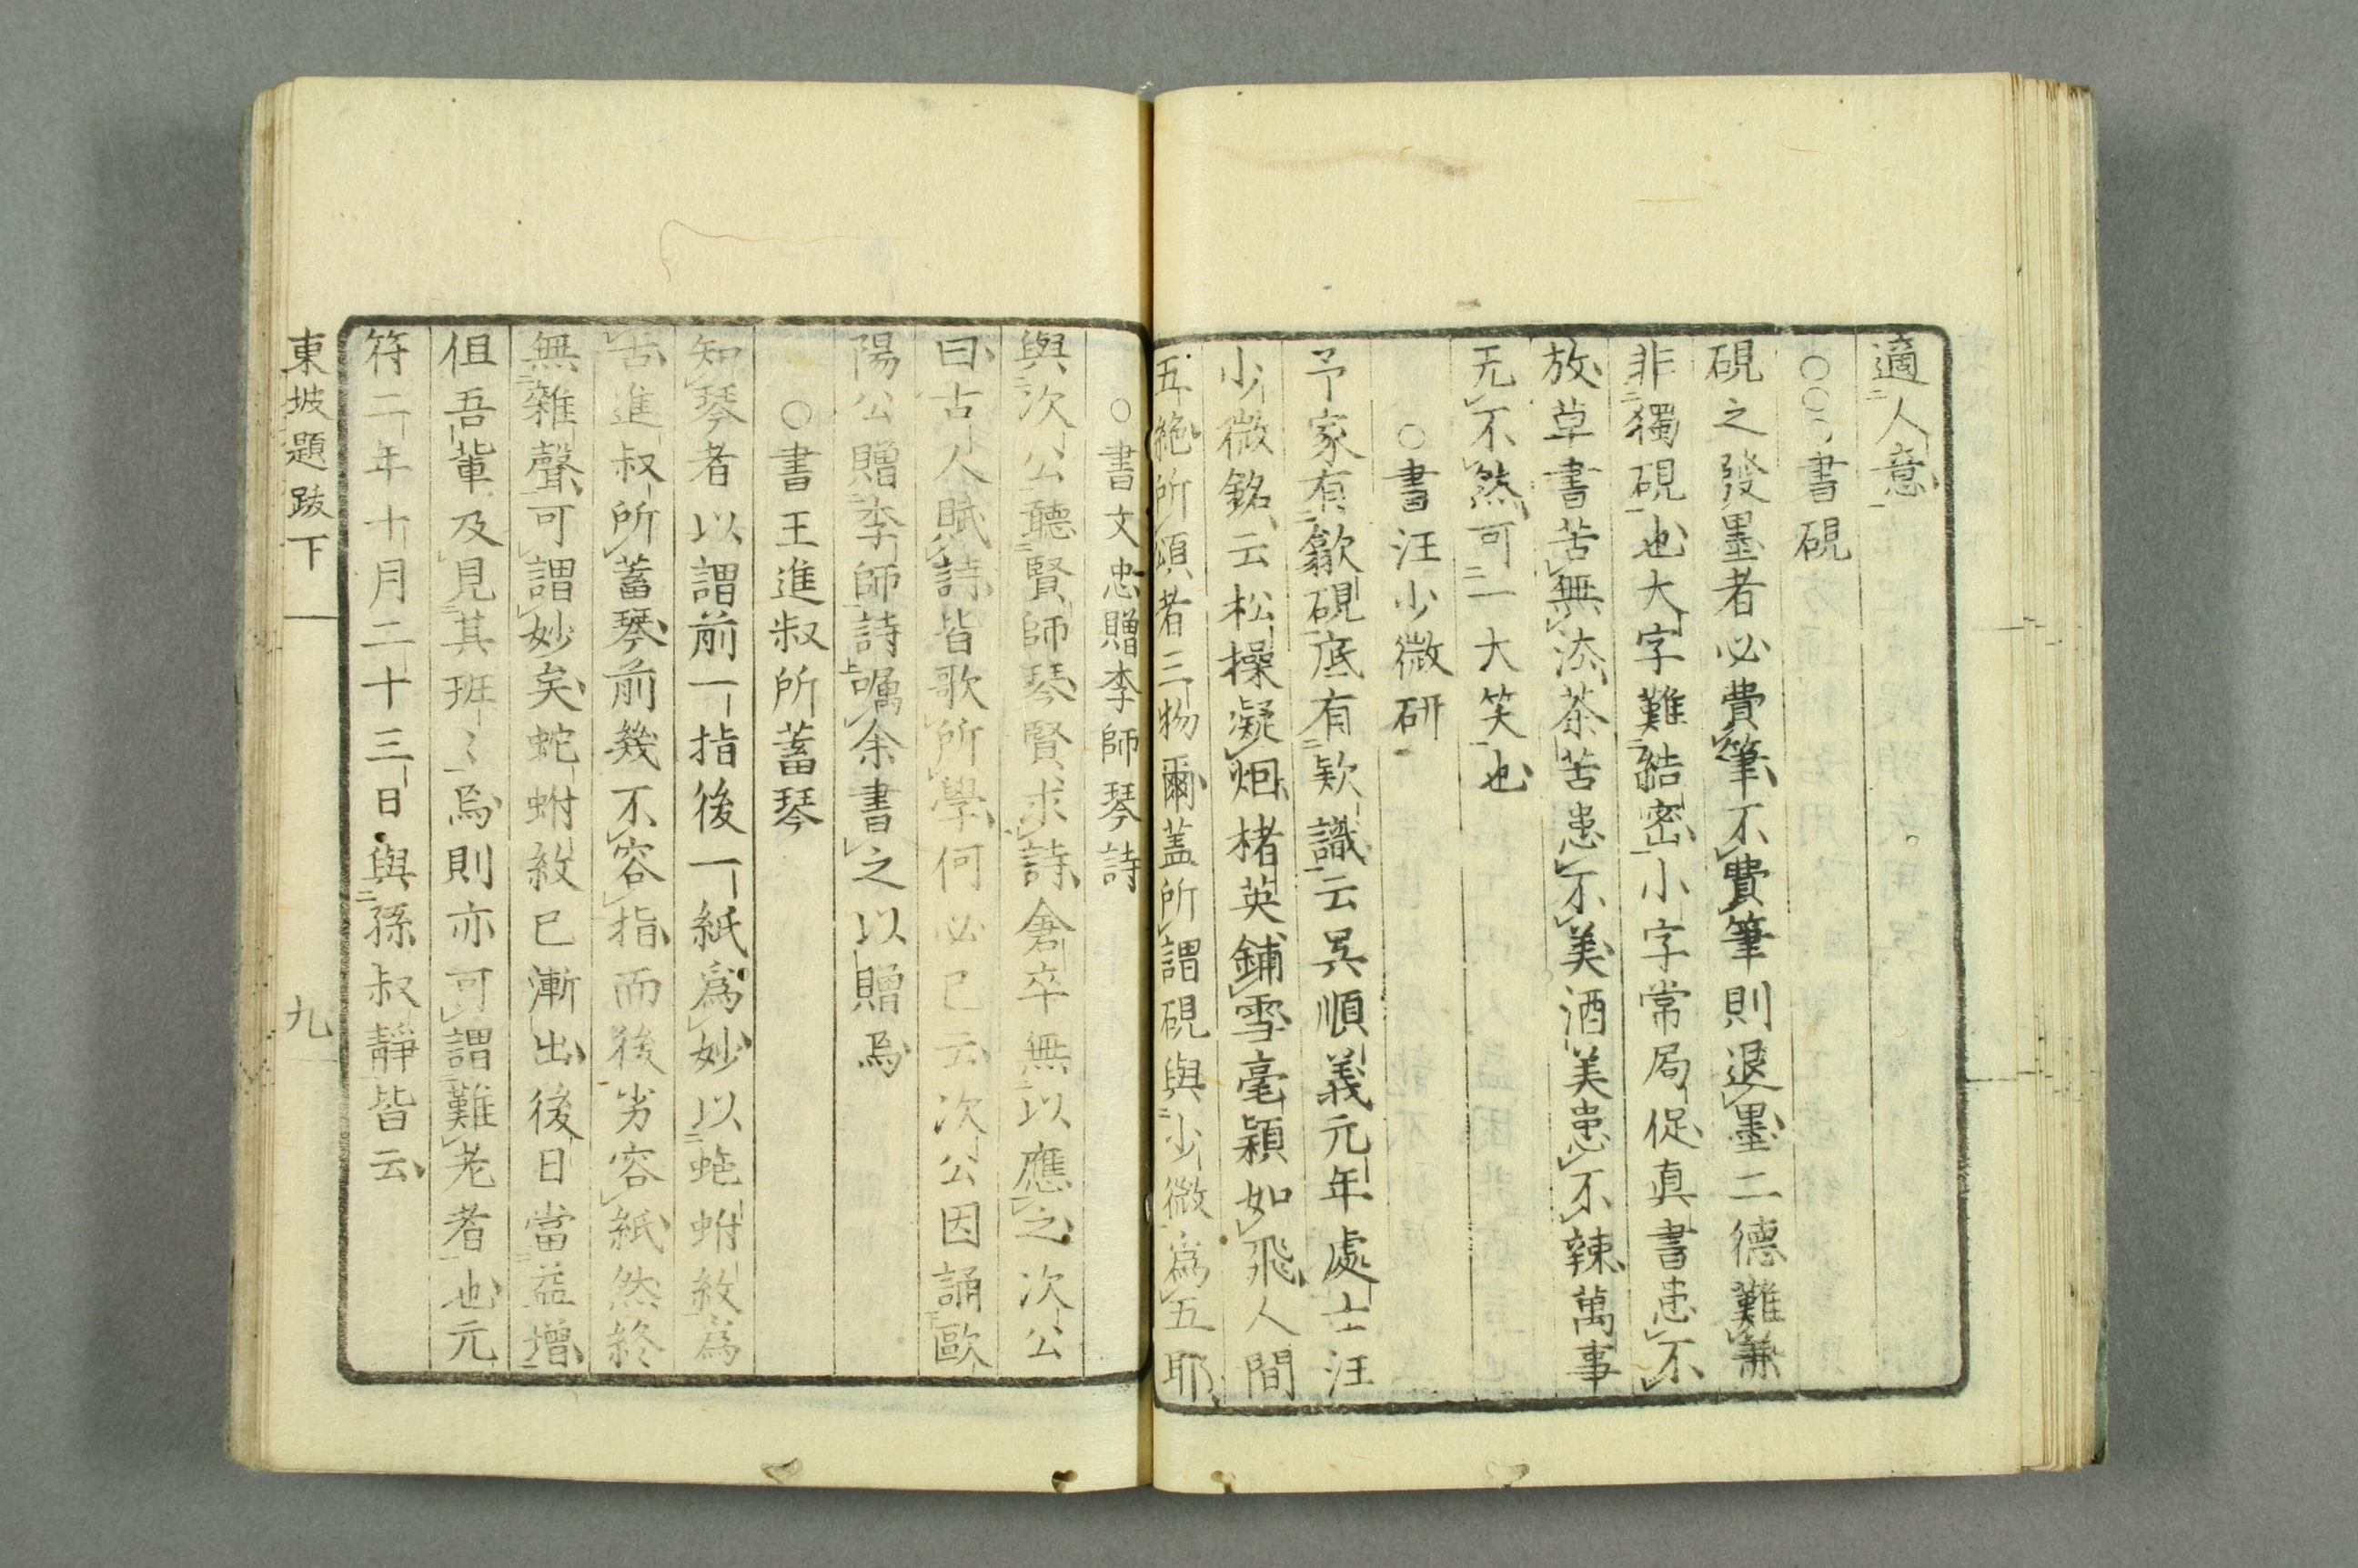 適人意
○○○書硯
硯之發墨者必費筆不費筆則退墨二德難兼
非獨硯也大字難結密小字常局促真書患不
放草書苦無法茶苦患不美酒美患不辣萬事
无不然可一大笑也
○書汪少微研
予家有歙硯底有欵識云吳順義元年處士汪
少微銘云松操凝烟楮英鋪雪毫穎如飛人間
五絶所頌者三物爾蓋所謂硯與少微為五耶
○書文忠贈李師琴詩
與次公聽賢師琴賢求詩倉卒無以應之次公
曰古人賦詩皆歌所學何必已云次公因誦歐
陽公贈李師詩囑余書之以贈焉
○書王進叔所蓄琴
知琴者以謂前一指後一紙爲妙以虵蚹紋為
古進叔所蓄琴前幾不容指而後劣容紙然終
無雜聲可謂妙矣蛇蚹紋已漸出後日當益增
但吾輩及見其班〻焉則亦可謂難老者也元
符二年十月二十三日與孫叔靜皆云
東坡題跋下
九